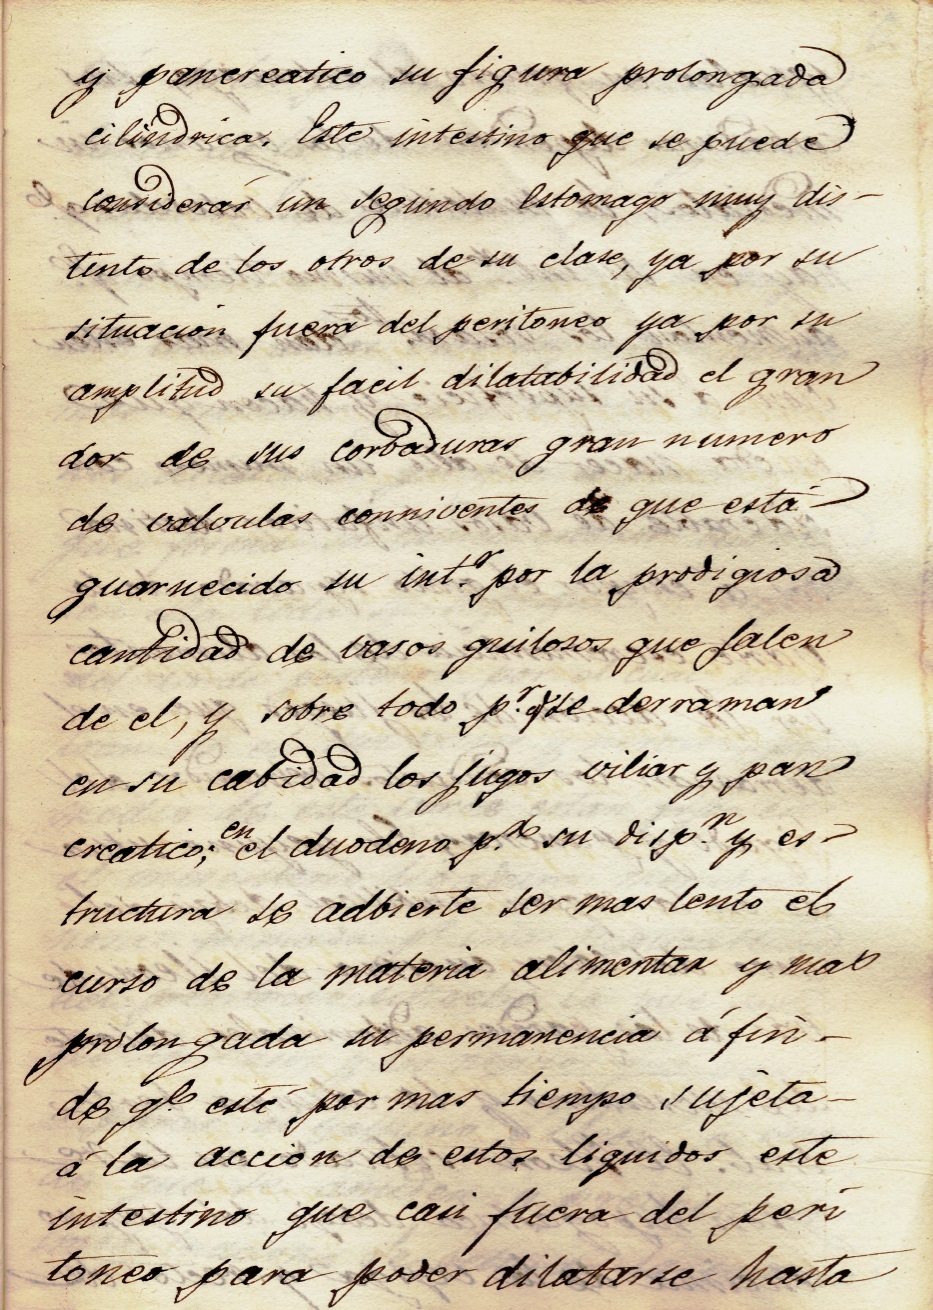 y pancreatico su figura prolongada
cilindrica. Este intestino que se puede
considerar un segundo Estomago muy dis-
tinto de los otros de su clase, ya por su
situacion fuera del peritoneo ya por su
amplitud su facil dilatabilidad el gran
dor de sus corbaduras gran numero
de valvulas conniventes de que está
guarnecido su int.r por la prodigiosa
cantidad de vasos quilosos que salen
de el, y sobre todo p.r q.e se derraman
en su cabidad los jugos viliar y pan
creatico; en el duodeno p.r su disp.n y es-
tructura se adbierte ser mas lento el
curso de la materia alimentar y mas
prolongada su permanencia á fin -
de q.e esté por mas tiempo sujeta -
á la accion de estos liquidos este
intestino que casi fuera del peri
toneo para poder dilatarse hasta